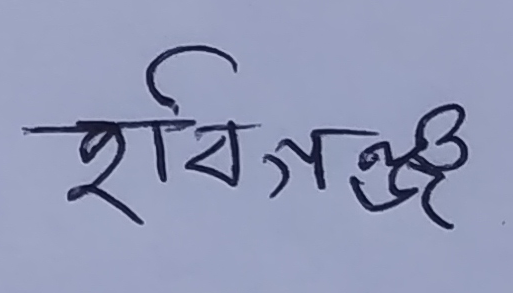 হবিগঞ্জ